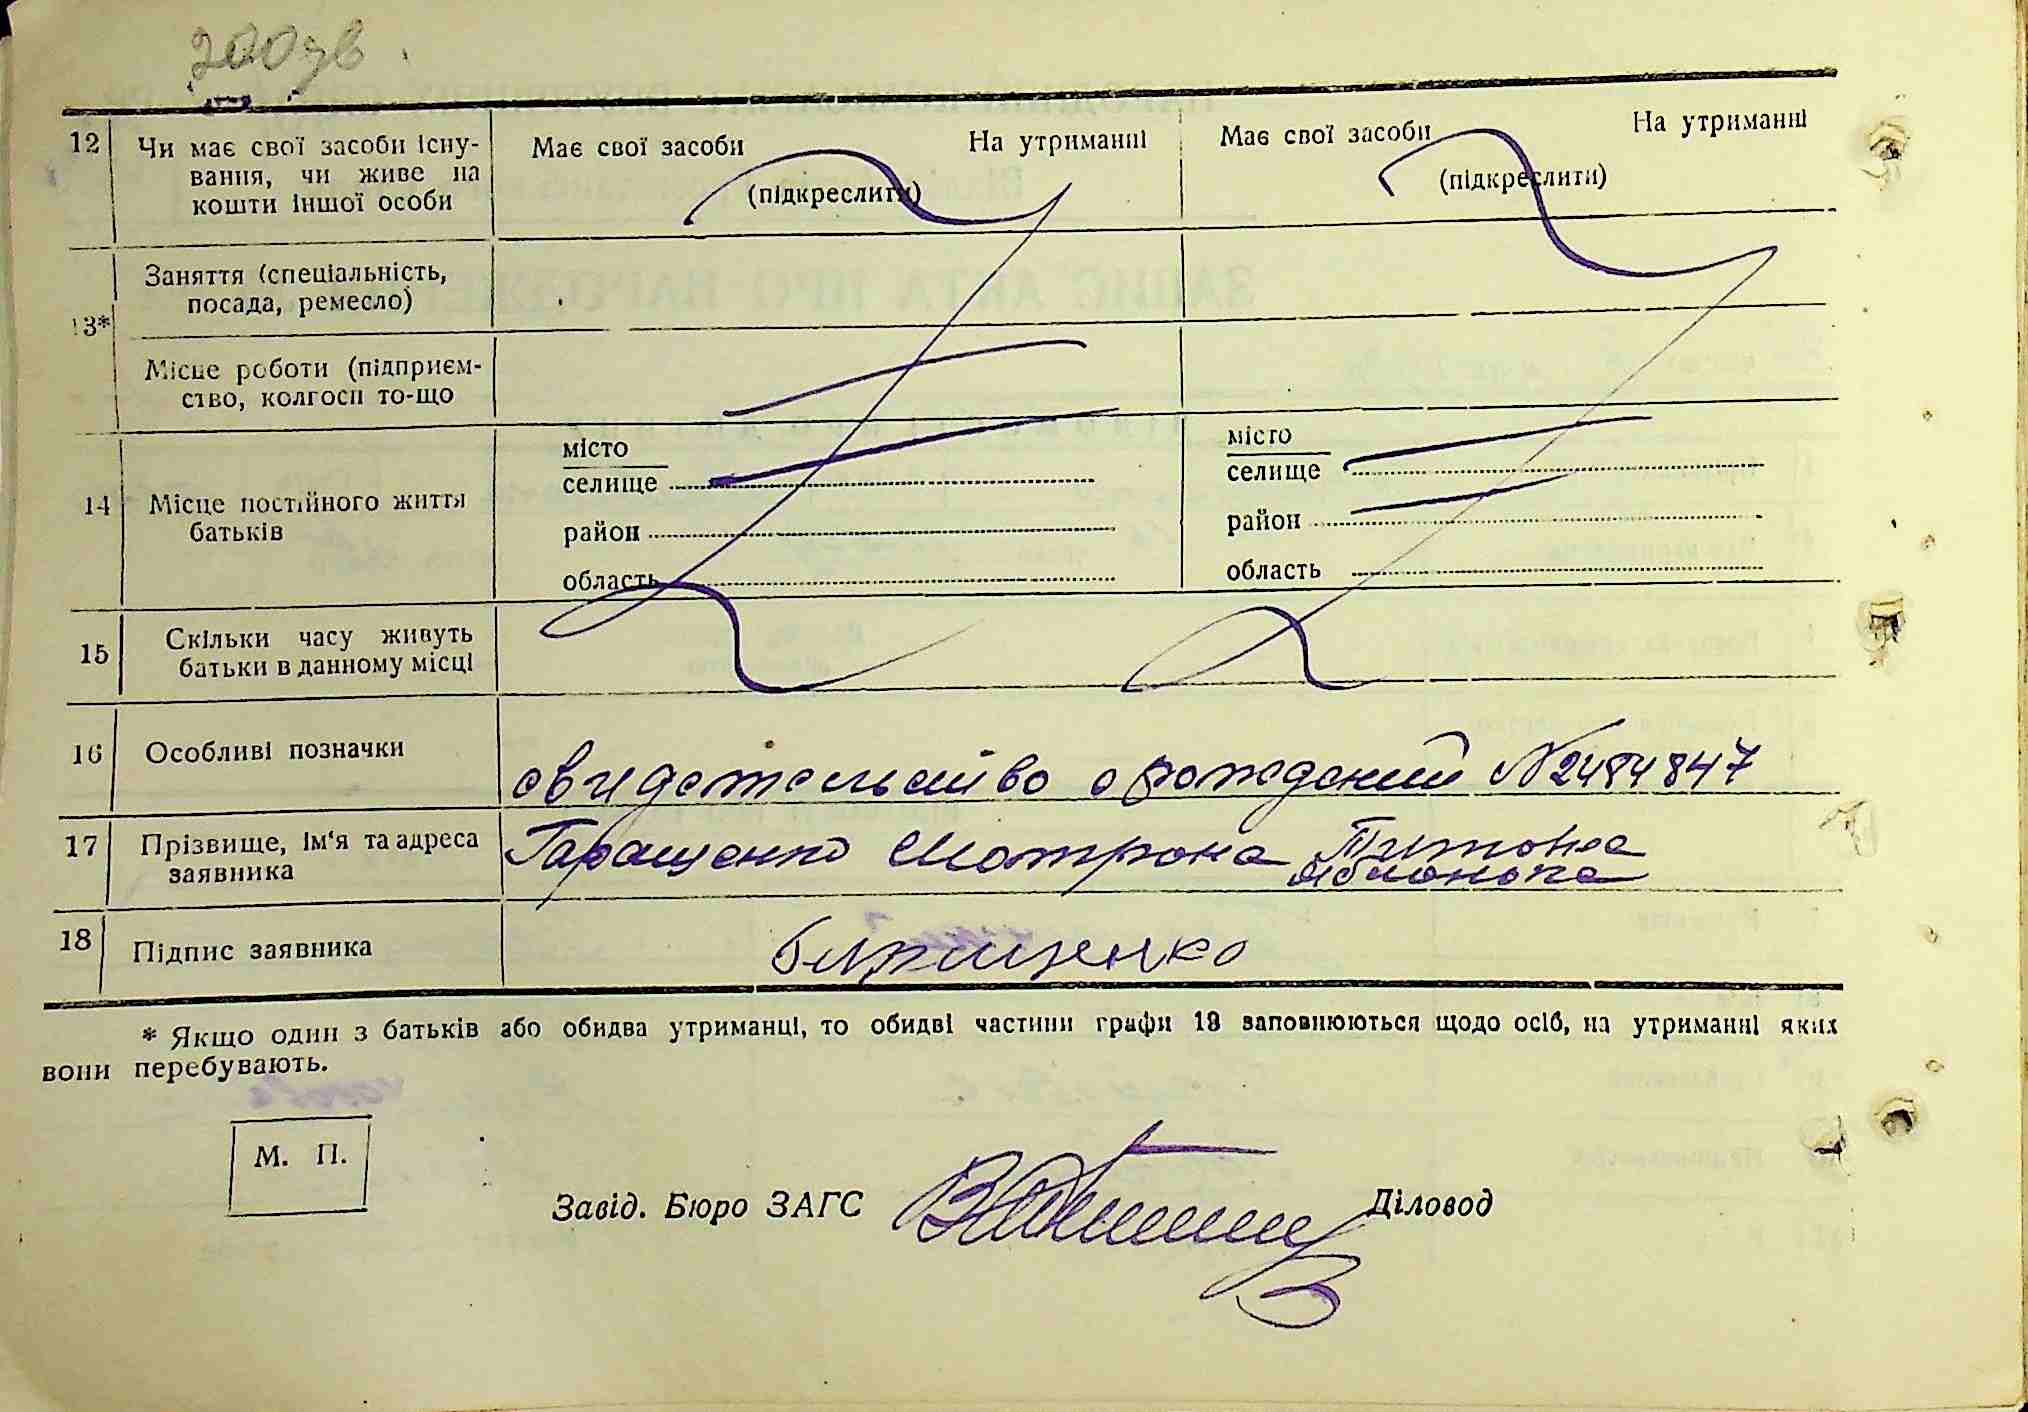 200 зв.
12 Чи має свої засоби існу-
вання, чи живе на
кошти іншої особи
Має свої засоби На утриманні
(підкреслити)
Має свої засоби На утриманні
(підкреслити)
13*
Заняття (спеціальність,
посада, ремесло)
Місце роботи (підприєм-
ство, колгосп то-що
14 Місце постійного життя
батьків
місто
селище
район
область
місто
селище
район
область
15 Скільки часу живуть
батьки в данному місці
16 Особливі позначки
свидетельство о рождений N2484847
17 Прізвище, ім'я та адреса
заявника
Гаращенко Мотрона Титовна
Яблоновка
18 Підпис заявника
* Якщо один з батьків або обидва утриманці, то обидві частини графи 13 заповнюються щодо осіб, на утриманні яких
вони перебувають.
М. П.
Завід. Бюро ЗАГС Діловод